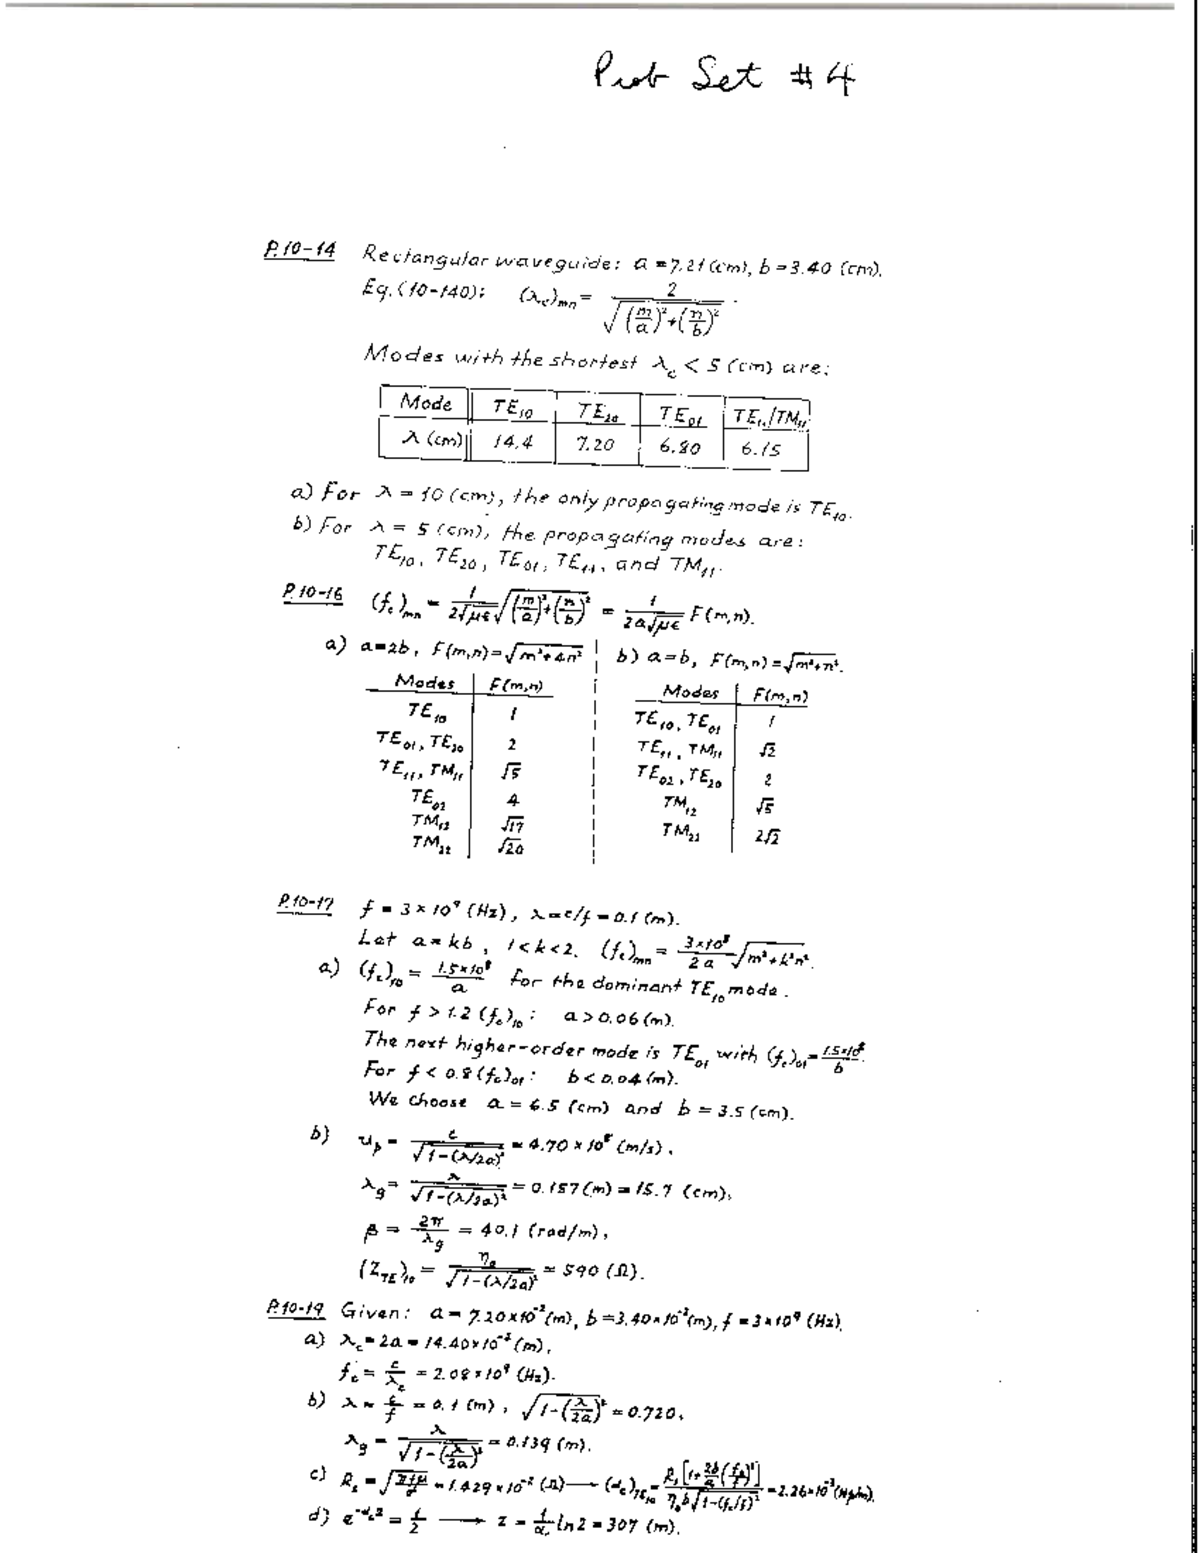 Prob Set #4
P.10-14 Rectangular waveguide: a = 7.21 (cm), b = 3.40 (cm).
Eq. (10-140): (λc)mn = 2 / √((m/a)² + (n/b)²) .
Modes with the shortest λc < 5 (cm) are:
Mode | TE10 | TE20 | TE01 | TE11/TM11
λ (cm) | 14.4 | 7.20 | 6.80 | 6.15
a) For λ = 10 (cm), the only propagating mode is TE10.
b) For λ = 5 (cm), the propagating modes are:
TE10, TE20, TE01, TE11, and TM11.
P.10-16 (fc)mn = 1/(2√με) √((m/a)² + (n/b)²) = 1/(2a√με) F(m,n).
a) a=2b, F(m,n) = √(m²+4n²) b) a=b, F(m,n) = √(m²+n²).
Modes | F(m,n) Modes | F(m,n)
TE10 | 1 TE10, TE01 | 1
TE01, TE20 | 2 TE11, TM11 | √2
TE11, TM11 | √5 TE02, TE20 | 2
TE02 | 4 TM12 | √5
TM12 | √17 TM22 | 2√2
TM22 | √20
P.10-17 f = 3×10⁹ (Hz), λ = c/f = 0.1 (m).
Let a = kb, 1<k<2. (fc)mn = 3×10⁸/2a √(m²+k²n²).
a) (fc)10 = 1.5×10⁸/a for the dominant TE10 mode.
For f > 1.2 (fc)10: a > 0.06 (m).
The next higher-order mode is TE01 with (fc)01 = 1.5×10⁸/b.
For f < 0.8 (fc)01: b < 0.04 (m).
We choose a = 6.5 (cm) and b = 3.5 (cm).
b) up = c/√(1-(λ/2a)²) = 4.70 × 10⁸ (m/s),
λg = λ/√(1-(λ/2a)²) = 0.157 (m) = 15.7 (cm),
β = 2π/λg = 40.1 (rad/m),
(ZTE)10 = η0/√(1-(λ/2a)²) = 590 (Ω).
P.10-19 Given: a = 7.20×10⁻² (m), b = 3.40×10⁻² (m), f = 3×10⁹ (Hz).
a) λc = 2a = 14.40×10⁻² (m),
fc = c/λc = 2.08×10⁹ (Hz).
b) λ = c/f = 0.1 (m), √(1-(λ/2a)²) = 0.720,
λg = λ/√(1-(λ/2a)²) = 0.139 (m).
c) Rs = √(πfμ/σ) = 1.429×10⁻² (Ω) → (αc)TE10 = Rs[1+2b/a(fc/f)²] / η0b√(1-(fc/f)²) = 2.26×10⁻³ (Np/m).
d) e^(-αcz) = 1/2 → z = 1/αc ln2 = 307 (m).